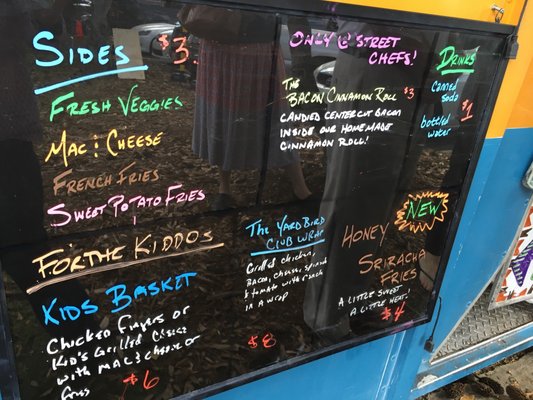 Sides $3
Fresh Veggies
Mac & Cheese
French Fries
Sweet Potato Fries
For the Kiddos
Kids Basket
Chicken Fingers or
Kid's Grilled Cheese
with Mac & cheese or
Fries
$6
The Yard Bird
Club Wrap
Grilled chicken,
Bacon, cheese, spinach
& tomato with ranch
in a wrap
$8
Only @ Street
Chefs!
The
Bacon Cinnamon Roll $3
Candied center cut bacon
inside our homemade
cinnamon roll!
Honey
Sriracha
Fries
A little sweet
A little heat!
$4
New
Drinks
canned
soda
$1
bottled
water